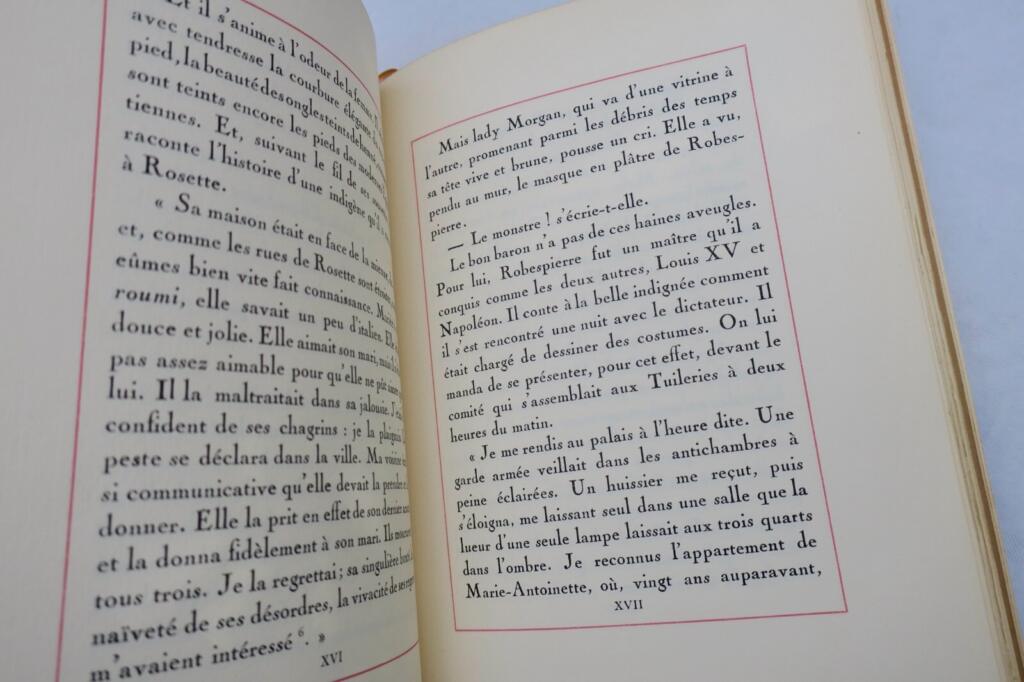 Et il s'anime à l'odeur de la femme
avec tendresse la courbure élégante du
pied, la beauté des ongles teints de henné
sont teints encore les pieds des modernes
tiennes. Et, suivant le fil de ses
raconte l'histoire d'une indigène qu'il
à Rosette.
« Sa maison était en face de la mienne,
et, comme les rues de Rosette sont
eûmes bien vite fait connaissance.
roumi, elle savait un peu d'italien.
douce et jolie. Elle aimait son mari, mais
pas assez aimable pour qu'elle ne pût
lui. Il la maltraitait dans sa jalousie.
confident de ses chagrins : je la plaignais
peste se déclara dans la ville. Ma voisine
si communicative qu'elle devait la prendre
donner. Elle la prit en effet de son dernier
et la donna fidèlement à son mari. Ils moururent
tous trois. Je la regrettai ; sa singulière
naïveté de ses désordres, la vivacité de ses
m'avaient intéressé 6. »
XVI
Mais lady Morgan, qui va d'une vitrine à
l'autre, promenant parmi les débris des temps
sa tête vive et brune, pousse un cri. Elle a vu,
pendu au mur, le masque en plâtre de Robes-
pierre.
— Le monstre ! s'écrie-t-elle.
Le bon baron n'a pas de ces haines aveugles.
Pour lui, Robespierre fut un maître qu'il a
conquis comme les deux autres, Louis XV et
Napoléon. Il conte à la belle indignée comment
il s'est rencontré une nuit avec le dictateur. Il
était chargé de dessiner des costumes. On lui
manda de se présenter, pour cet effet, devant le
comité qui s'assemblait aux Tuileries à deux
heures du matin.
« Je me rendis au palais à l'heure dite. Une
garde armée veillait dans les antichambres à
peine éclairées. Un huissier me reçut, puis
s'éloigna, me laissant seul dans une salle que la
lueur d'une seule lampe laissait aux trois quarts
dans l'ombre. Je reconnus l'appartement de
Marie-Antoinette, où, vingt ans auparavant,
XVII